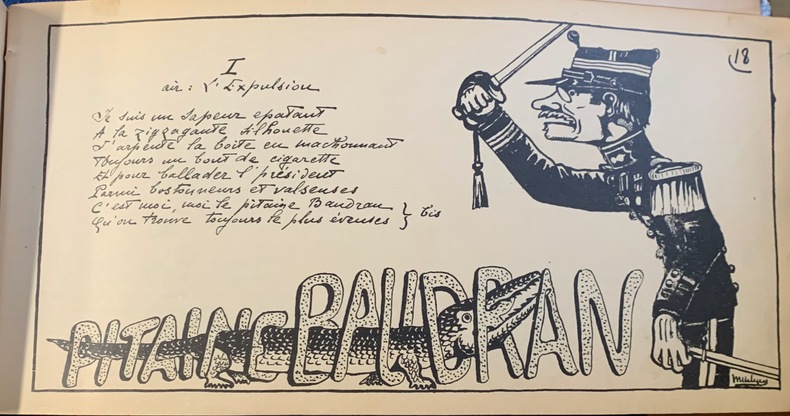 18
I
air : L'Expulsion
Je suis un sapeur epatant
A la zigzagante silhouette
J'arpente la boite en machonnant
Toujours un bout de cigarette
Et pour ballader l'président
Parmi bostonneurs et valseuses
C'est moi, moi le pitaine Baudran
Qu'on trouve toujours le plus
bis
PITAINE BAUDRAN